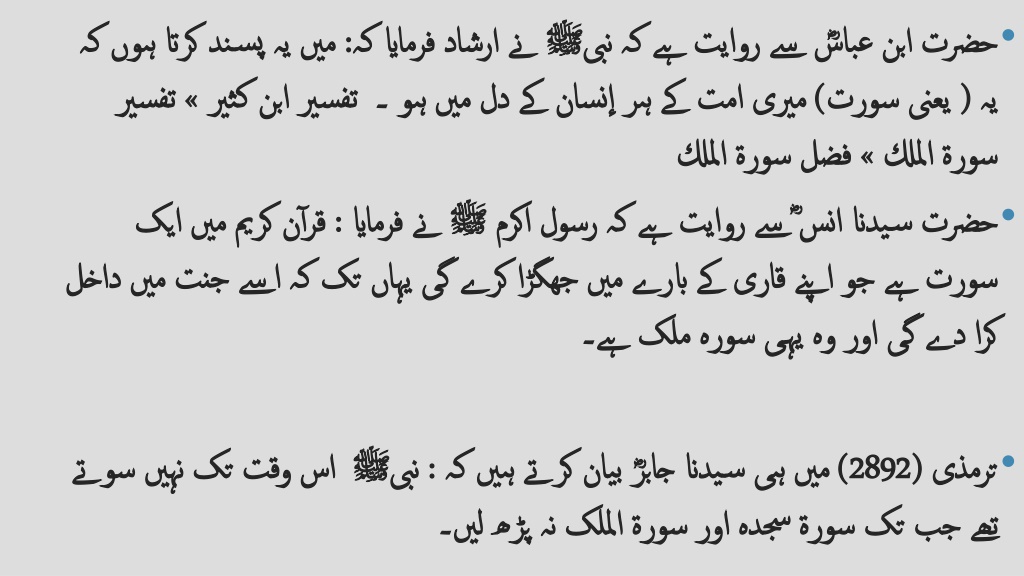 • حضرت ابن عباسؓ سے روایت ہے کہ نبیﷺ نے ارشاد فرمایا کہ: میں یہ پسند کرتا ہوں کہ
یہ ( یعنی سورت) میری امت کے ہر إنسان کے دل میں ہو ۔ تفسیر ابن کثیر » تفسیر
سورة الملك » فضل سورة الملك
• حضرت سیدنا انس ؓ سے روایت ہے کہ رسول اکرم ﷺ نے فرمایا : قرآن کریم میں ایک
سورت ہے جو اپنے قاری کے بارے میں جھگڑا کرے گی یہاں تک کہ اسے جنت میں داخل
کرا دے گی اور وہ یہی سورہ ملک ہے۔
• ترمذی (2892) میں ہی سیدنا جابرؓ بیان کرتے ہیں کہ : نبیﷺ اس وقت تک نہیں سوتے
تھے جب تک سورة سجدہ اور سورة الملک نہ پڑھ لیں۔